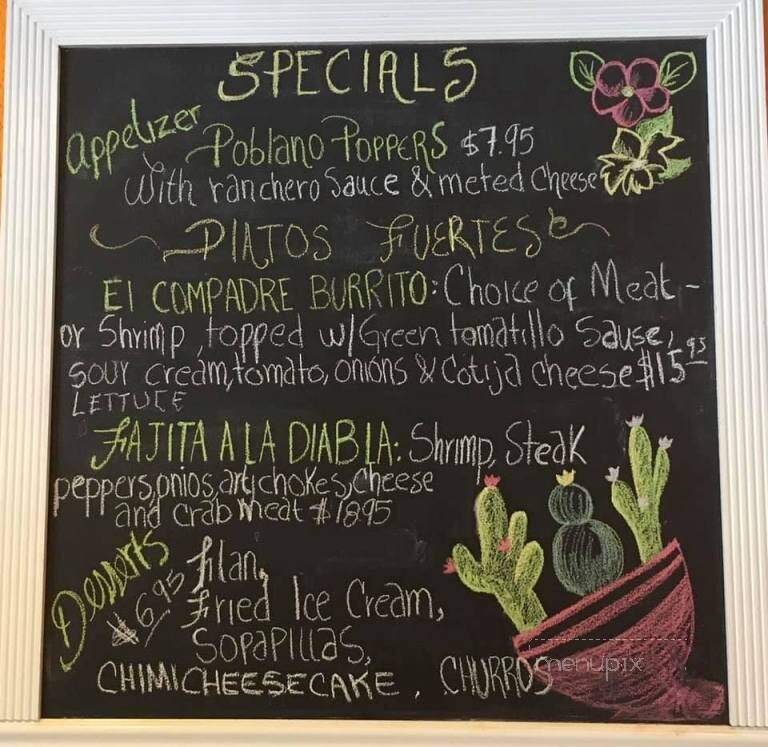 SPECIALS
Appetizer
Poblano POPPERS $7.95
With ranchero Sauce & meted Cheese
PLATOS FUERTES
El COMPADRE BURRITO: Choice of Meat -
or Shrimp, topped w/ Green tomatillo Sause,
sour cream, tomato, onions & Cotija cheese $15.95
LETTUCE
FAJITA A LA DIABLA: Shrimp, Steak
peppers, onios, artichokes, cheese
and crab meat $18.95
Desserts
$6.95
Flan,
Fried Ice Cream,
SOPAPILLAS,
CHIMICHEESECAKE, CHURROS
menupix